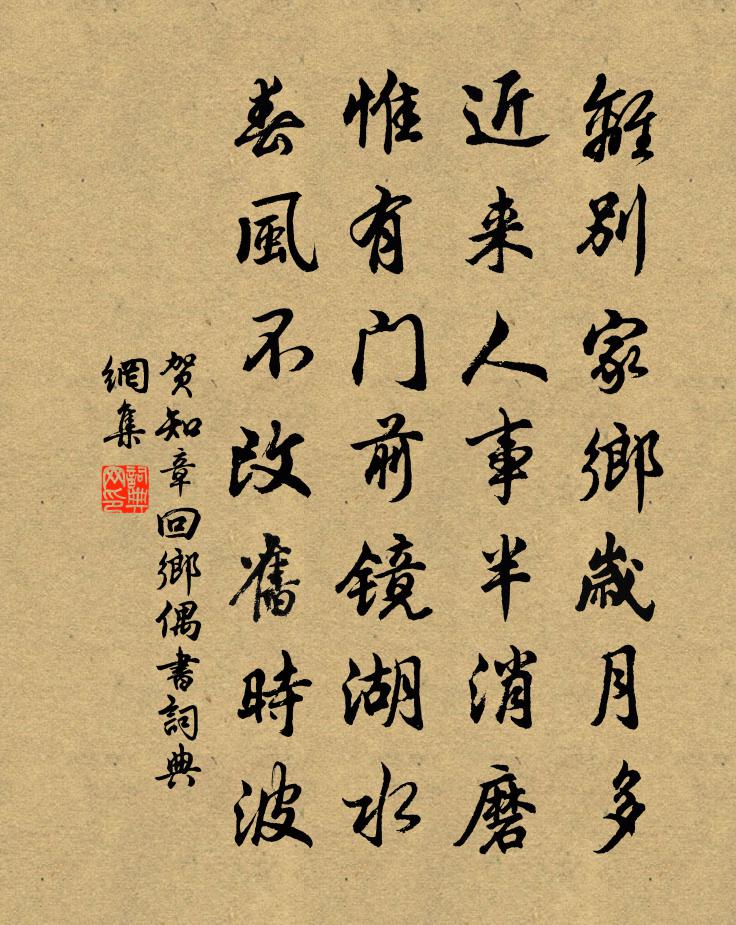 離别家鄉歲月多
近来人事半消磨
惟有门前镜湖水
春風不改舊時波
賀知章回鄉偶書詞典
網集
詞典
网印